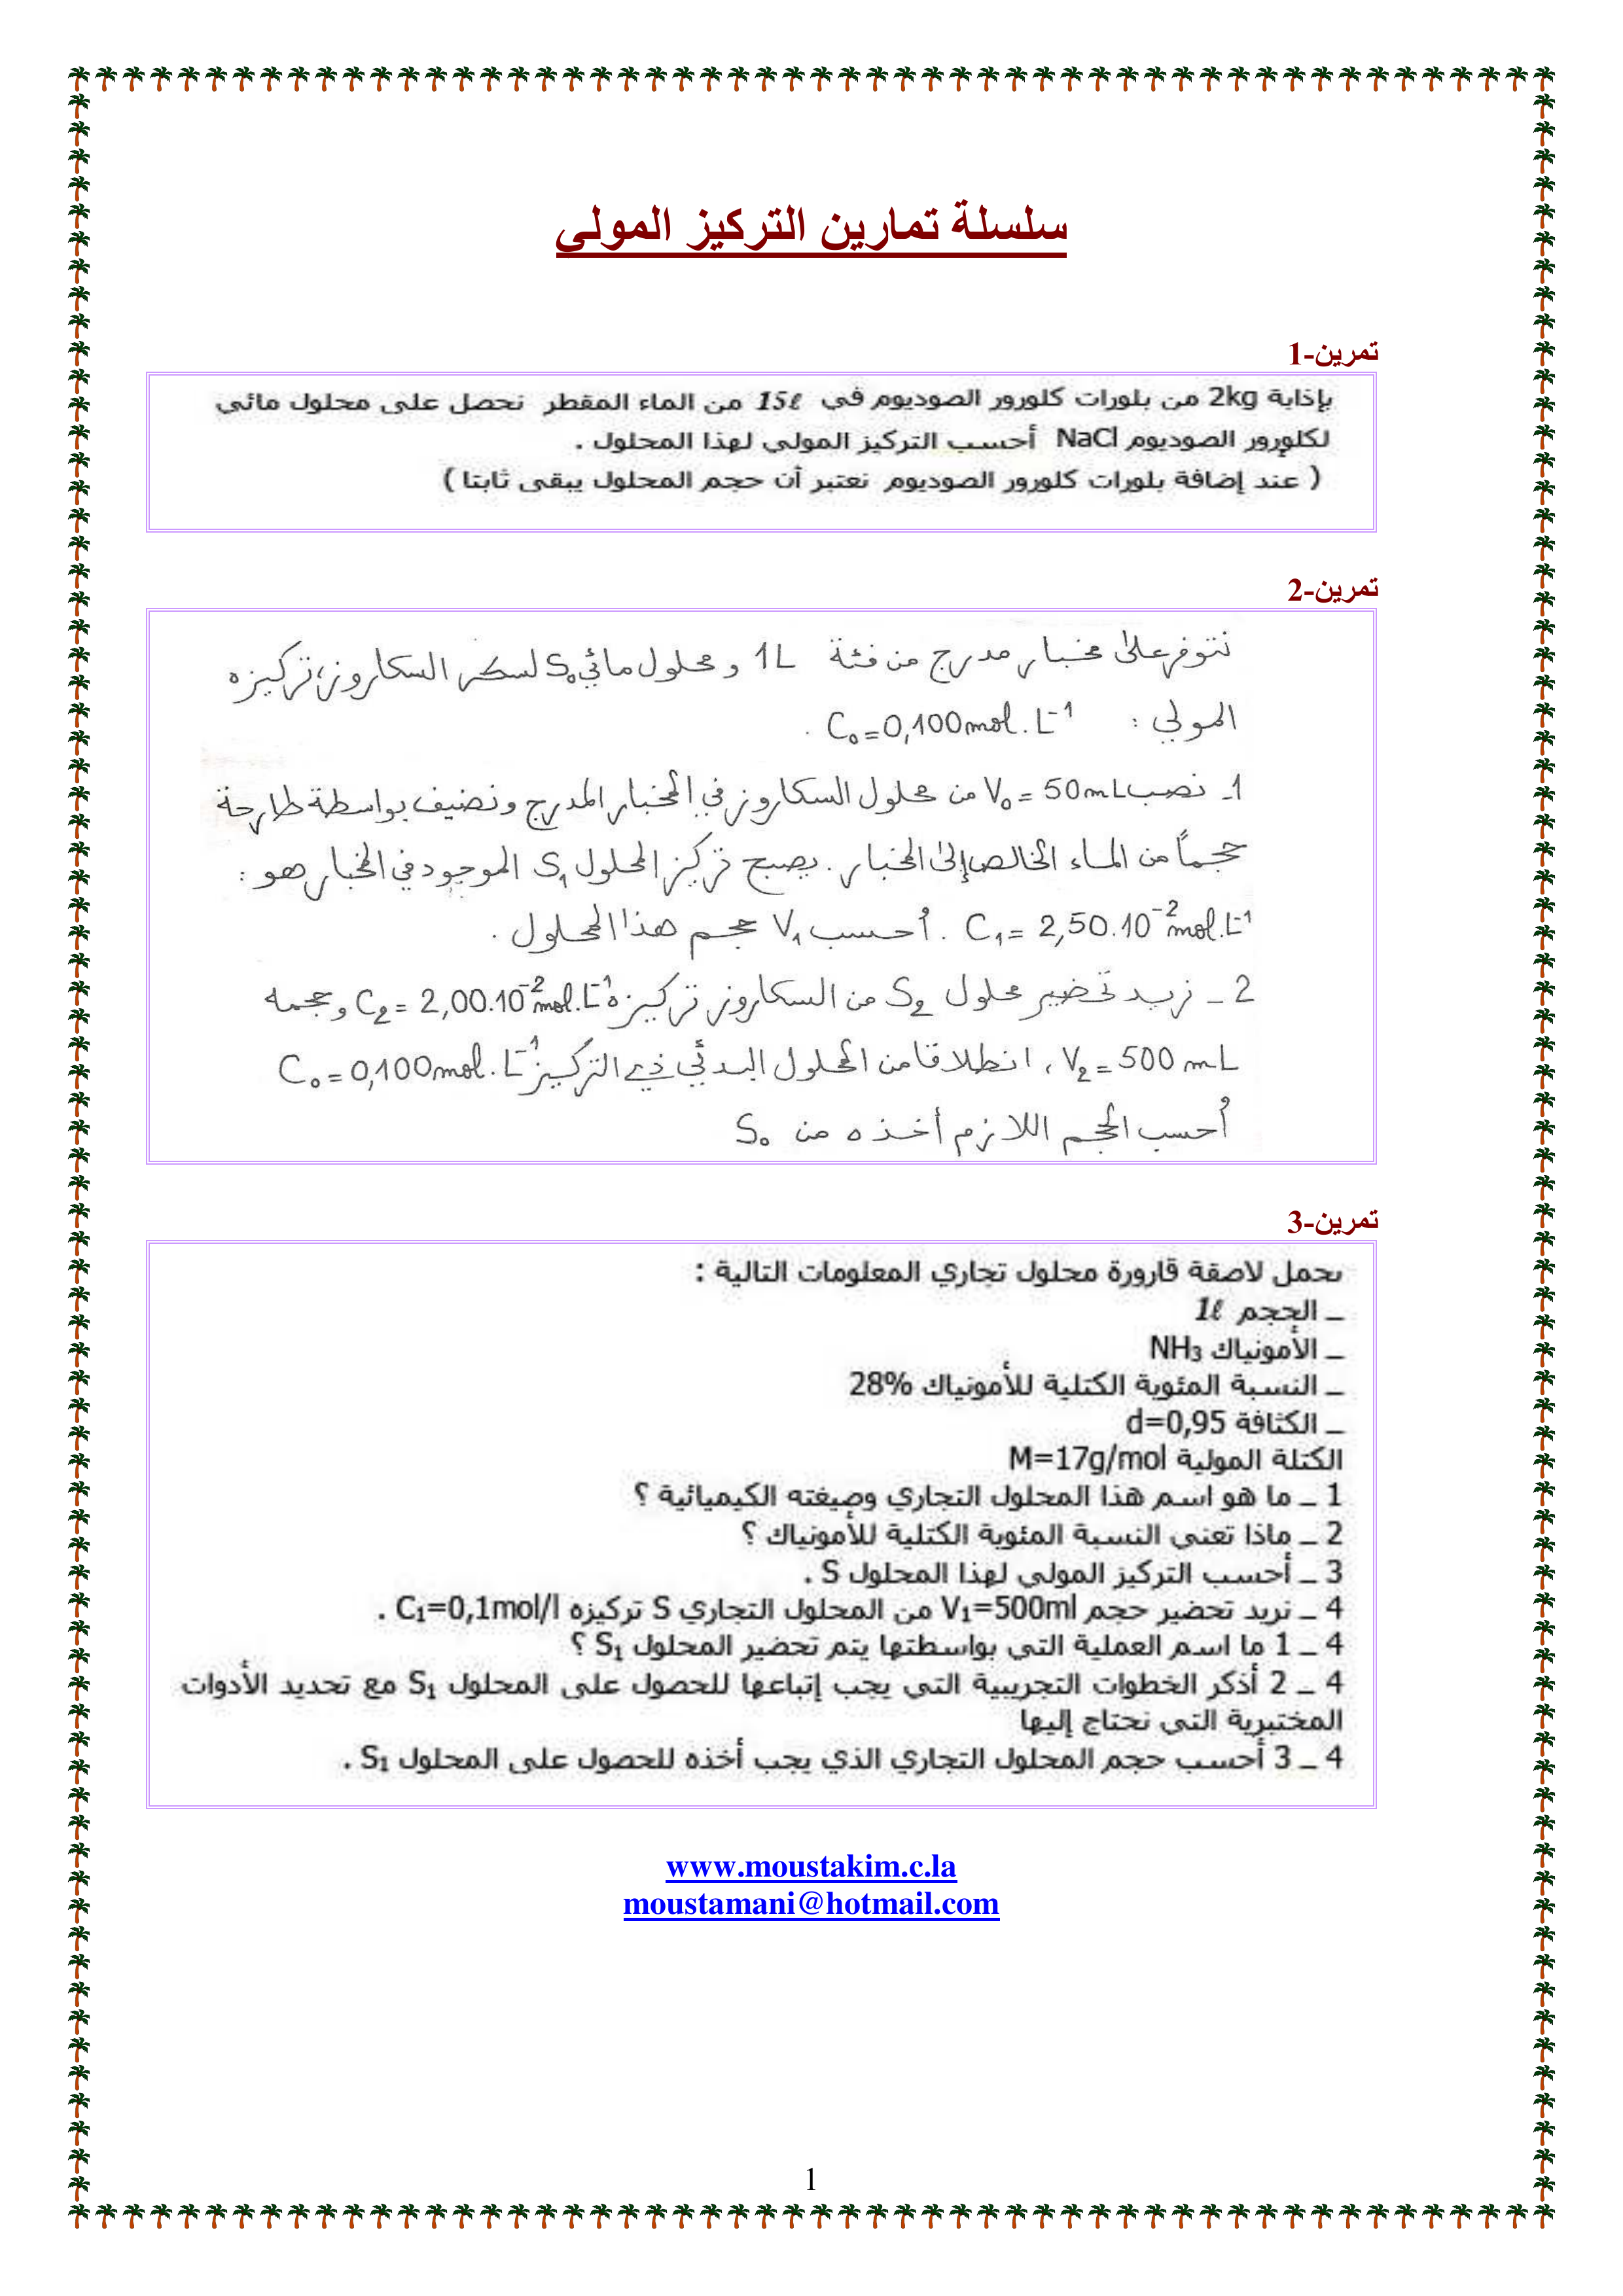 سلسلة تمارين التركيز المولي
تمرين-1
بإذابة 2kg من بلورات كلورور الصوديوم في 15ℓ من الماء المقطر نحصل على محلول مائي
لكلورور الصوديوم NaCl أحسب التركيز المولي لهذا المحلول .
( عند إضافة بلورات كلورور الصوديوم نعتبر أن حجم المحلول يبقى ثابتا )
تمرين-2
نتوفر على مخبار مدرج من فئة 1L و محلول مائي S₀ لسكر السكاروز، تركيزه
المولي : C₀=0,100mol.L⁻¹ .
1- نصب V₀=50mL من محلول السكاروز في المخبار المدرج ونضيف بواسطة طارحة
حجماً من الماء الخالص إلى المخبار . يصبح تركيز المحلول S₁ الموجود في المخبار هو :
C₁= 2,50.10⁻² mol.L⁻¹ . أحسب V₁ حجم هذا المحلول .
2 - نريد تحضير محلول S₂ من السكاروز تركيزه C₂= 2,00.10⁻² mol.L⁻¹ وحجمه
V₂=500 mL ، انطلاقا من المحلول البدئي ذي التركيز C₀=0,100mol.L⁻¹
أحسب الحجم اللازم أخذه من S₀
تمرين-3
تحمل لاصقة قارورة محلول تجاري المعلومات التالية :
_ الحجم 1ℓ
_ الأمونياك NH₃
_ النسبة المئوية الكتلية للأمونياك 28%
_ الكثافة d=0,95
الكتلة المولية M=17g/mol
1 _ ما هو اسم هذا المحلول التجاري وصيغته الكيميائية ؟
2 _ ماذا تعني النسبة المئوية الكتلية للأمونياك ؟
3 _ أحسب التركيز المولي لهذا المحلول S .
4 _ نريد تحضير حجم V₁=500ml من المحلول التجاري S تركيزه C₁=0,1mol/l .
4 _ 1 ما اسم العملية التي بواسطتها يتم تحضير المحلول S₁ ؟
4 _ 2 أذكر الخطوات التجريبية التي يجب إتباعها للحصول على المحلول S₁ مع تحديد الأدوات
المختبرية التي نحتاج إليها
4 _ 3 أحسب حجم المحلول التجاري الذي يجب أخذه للحصول على المحلول S₁ .
www.moustakim.c.la
moustamani@hotmail.com
1